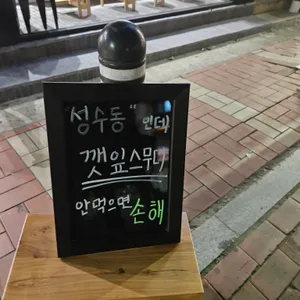 성수동" 인데!
깻잎스무디
안먹으면 손해